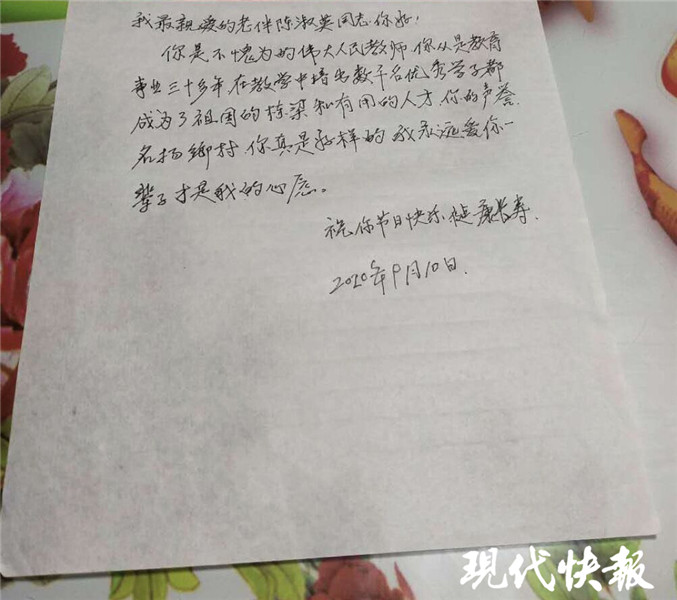 我最親爱的老伴陈淑英同志你好！
你是不愧为的伟大人民教师你从是教育
事业三十多年在教学中培出数千名优秀学子都
成为了祖国的栋梁和有用的人才你的声誉
名扬鄉村你真是好样的我永远爱你一
辈子才是我的心愿。
祝你节日快乐健康长寿.
2020年9月10日.
現代快報